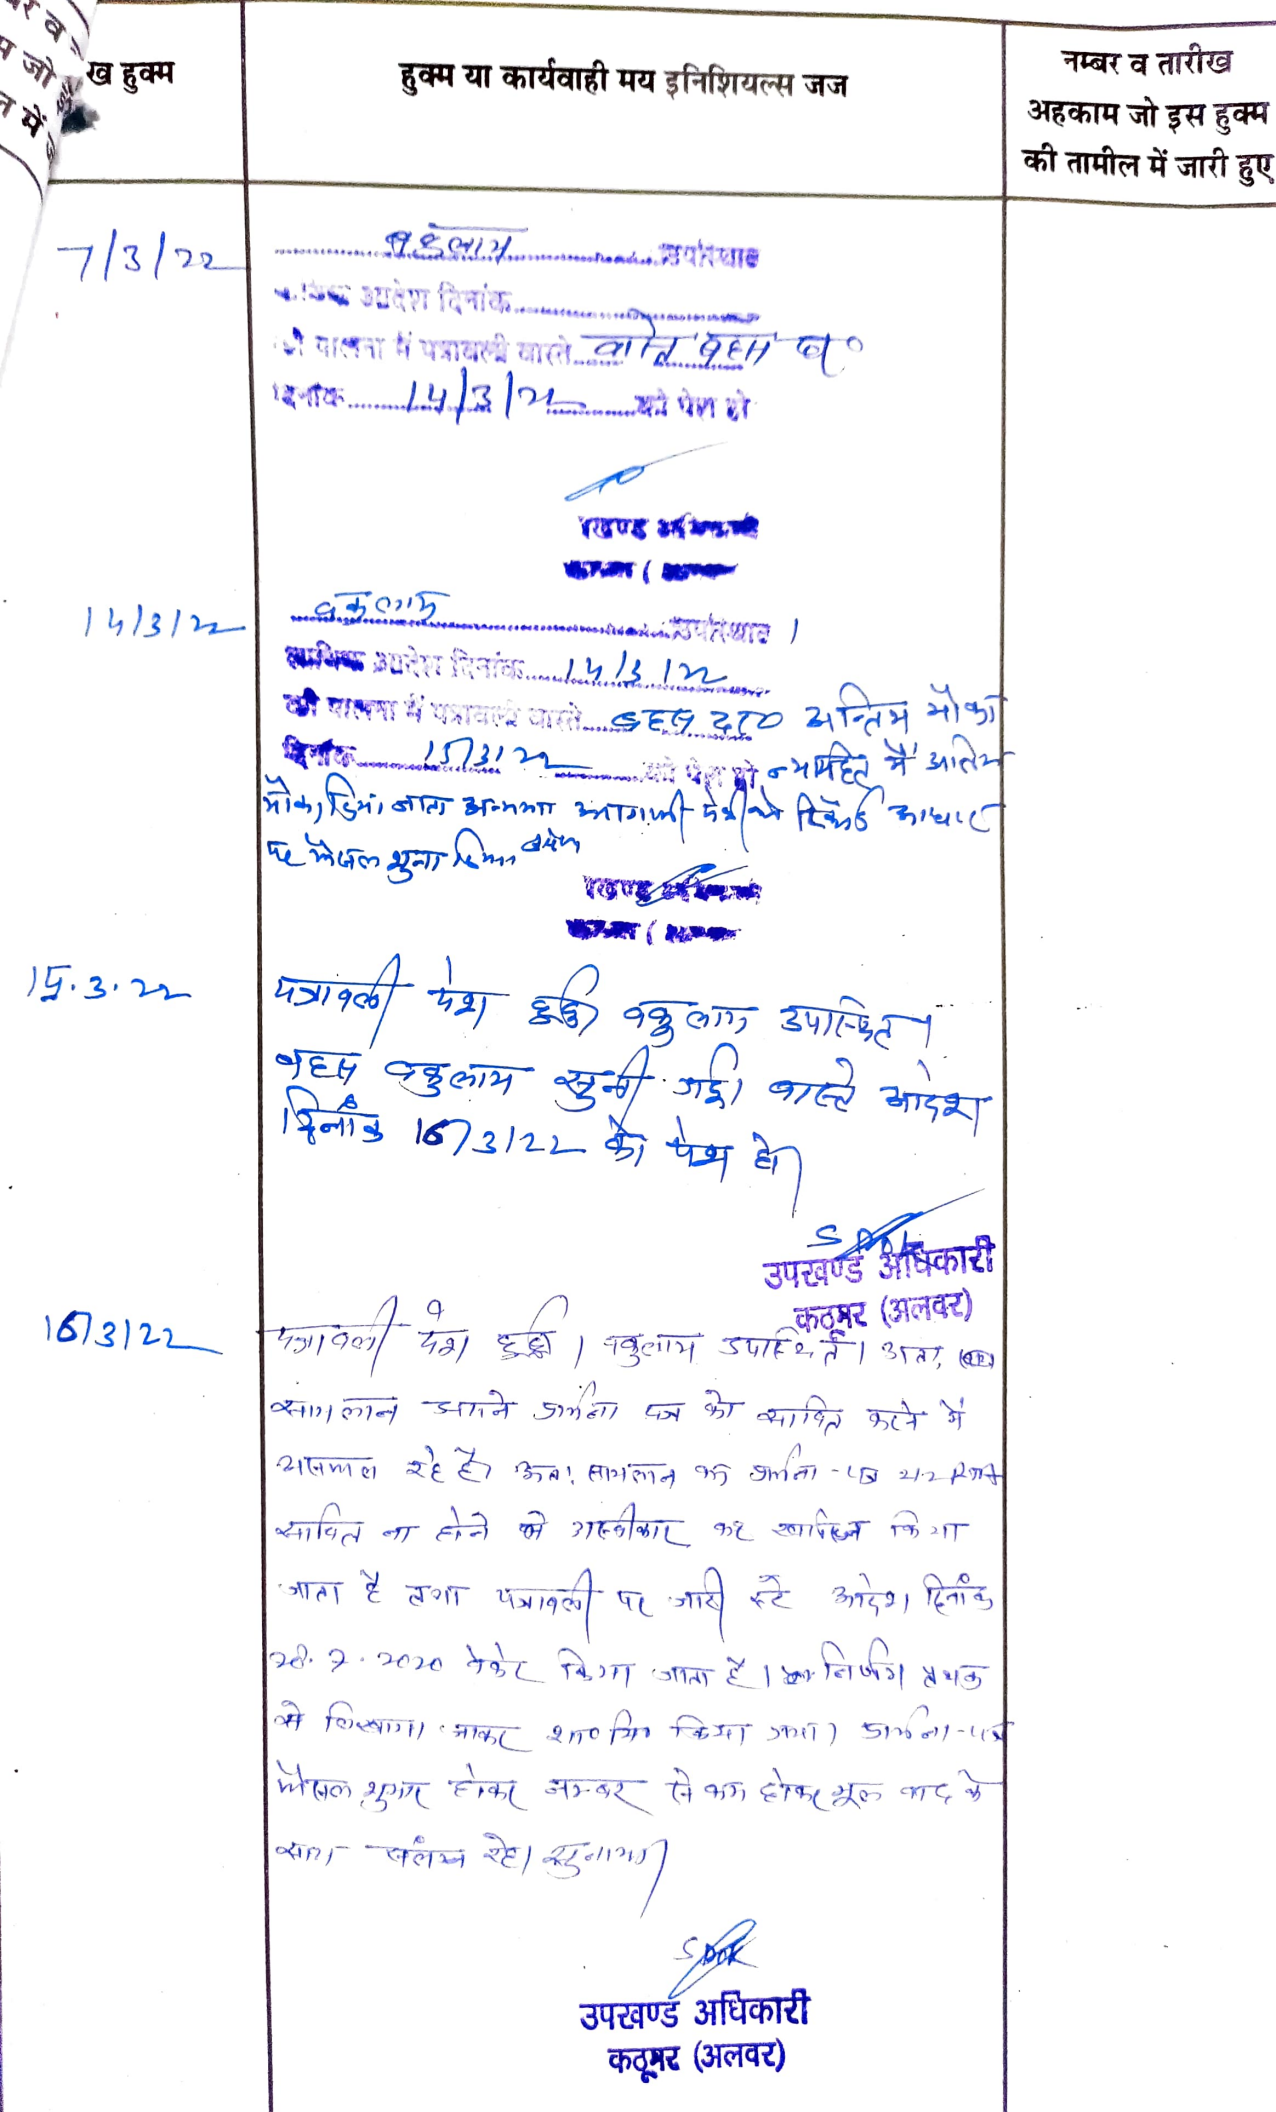 र व
जो
न में
ख हुक्म
हुक्म या कार्यवाही मय इनिशियल्स जज
नम्बर व तारीख
अहकाम जो इस हुक्म
की तामील में जारी हुए
7/3/22
वकुलाय उपस्थित
आदेश दिनांक
की पालना में पत्रावली वास्ते बहस
दिनांक 14/3/22 को पेश हो
खण्ड
14/3/22
वकुलाय उपस्थित ।
आदेश दिनांक 14/3/22
की पालना में पत्रावली वास्ते बहस अन्तिम मौका
दिनांक 15/3/22 को पेश हो न्यायहित में अन्तिम
मौका दिया जाता अन्यथा आगामी पेशी को रिकॉर्ड आधार
पर फैसल शुमा किया जायेगा
खण्ड
15.3.22
पत्रावली पेश हुई। वकुलाय उपस्थित।
बहस वकुलाय सुनी गई। वास्ते आदेश
दिनांक 16/3/22 को पेश हो।
उपखण्ड अधिकारी
कठूमर (अलवर)
16/3/22
पत्रावली पेश हुई। वकुलाय उपस्थित। अतः
सायलान अपने प्रार्थना पत्र को साबित करने में
असफल रहे है। अतः सायलान का प्रार्थना-पत्र 212 RTA
साबित ना होने से अस्वीकार कर खारिज किया
जाता है तथा पत्रावली पर जारी स्टे आदेश दिनांक
28.7.2020 वेकेट किया जाता है। निर्णय पृथक
से लिखाया जाकर शा० मि० किया गया। प्रार्थना-पत्र
फैसल शुमार होकर नम्बर से कम होकर मूल वाद के
साथ संलग्न रहे। सुनाया।
उपखण्ड अधिकारी
कठूमर (अलवर)